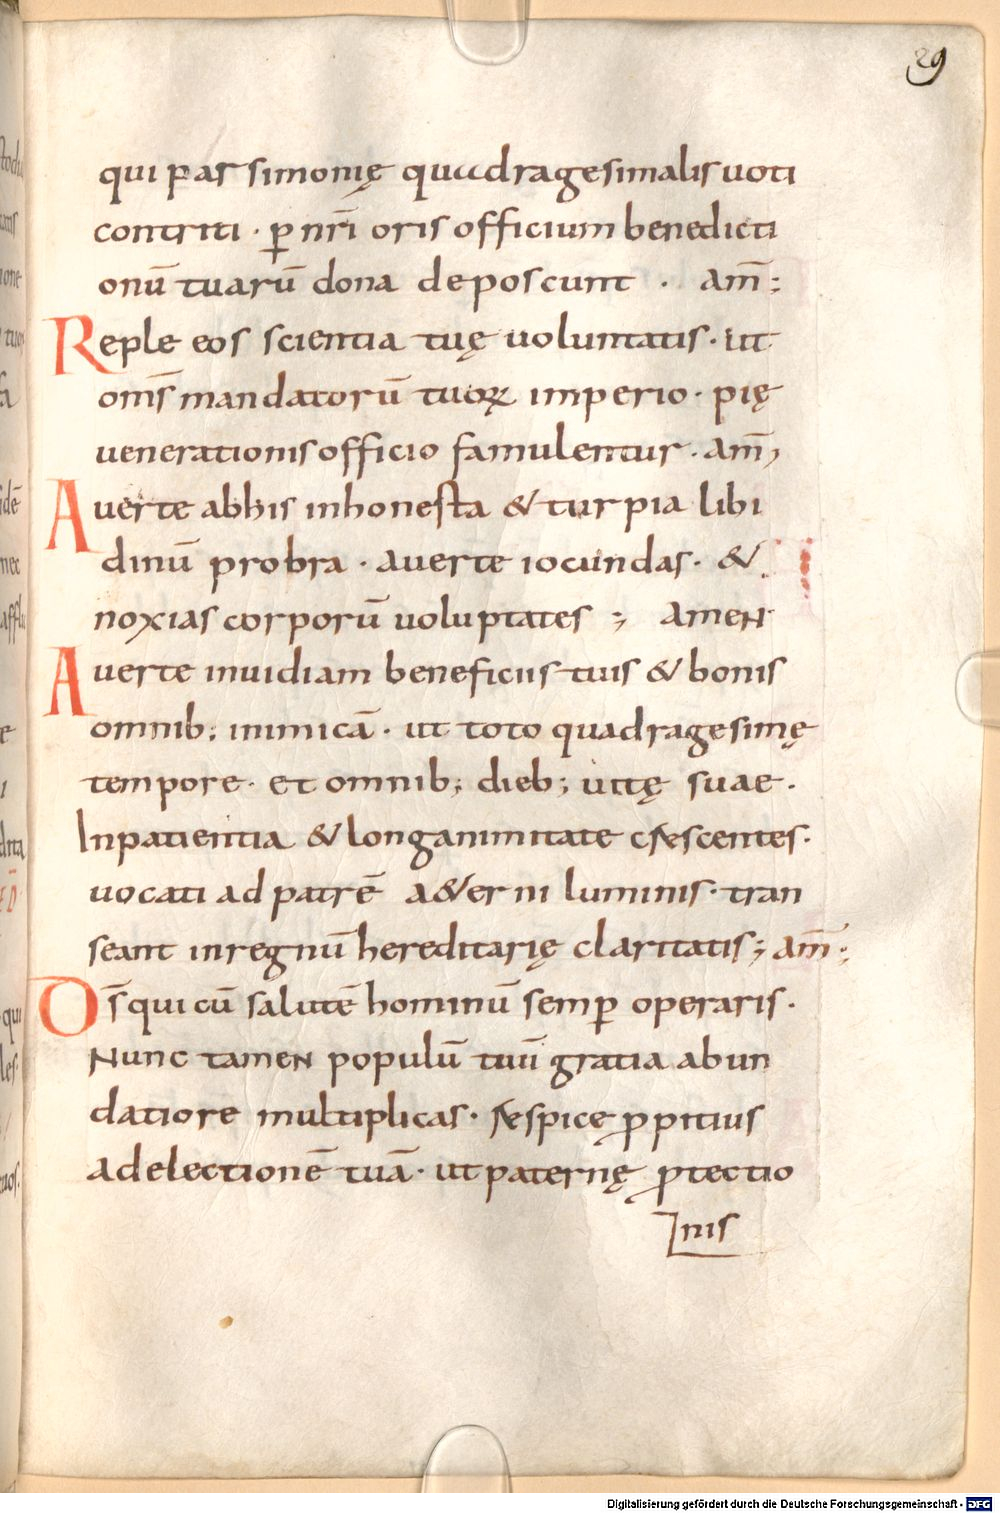 29
qui parsimonię quadragesimalis uoti
contriti · p̲ nr̄i oris officium benedicti
onū tuarū dona deposcunt · am̄;
Reple eos scientia tuę uoluntatis · ut
om̄s mandatorū tuoꝝ imperio · pię
uenerationis officio famulentur · am̄,
Auerte abhis inhonesta & turpia libi
dinū probra · auerte iocundas · &
noxias corporū uoluptates ; AMEN
Auerte inuidiam beneficiis tuis & bonis
omnib; inimicā · ut toto quadragesimę
tempore · et omnib; dieb; uitę suae ·
Inpatientia & longanimitate crescentes ·
uocati ad patrē a&erni luminis · tran
seant inregnū hereditarię claritatis; am̄·,
Ds̄ qui cū salutē hominū semꝑ operaris ·
Nunc tamen populū tuū gratia abun
datiore multiplicas · respice ꝓpitius
ad electionē tuā · ut paternę ꝓtectio
nis
Digitalisierung gefördert durch die Deutsche Forschungsgemeinschaft - DFG